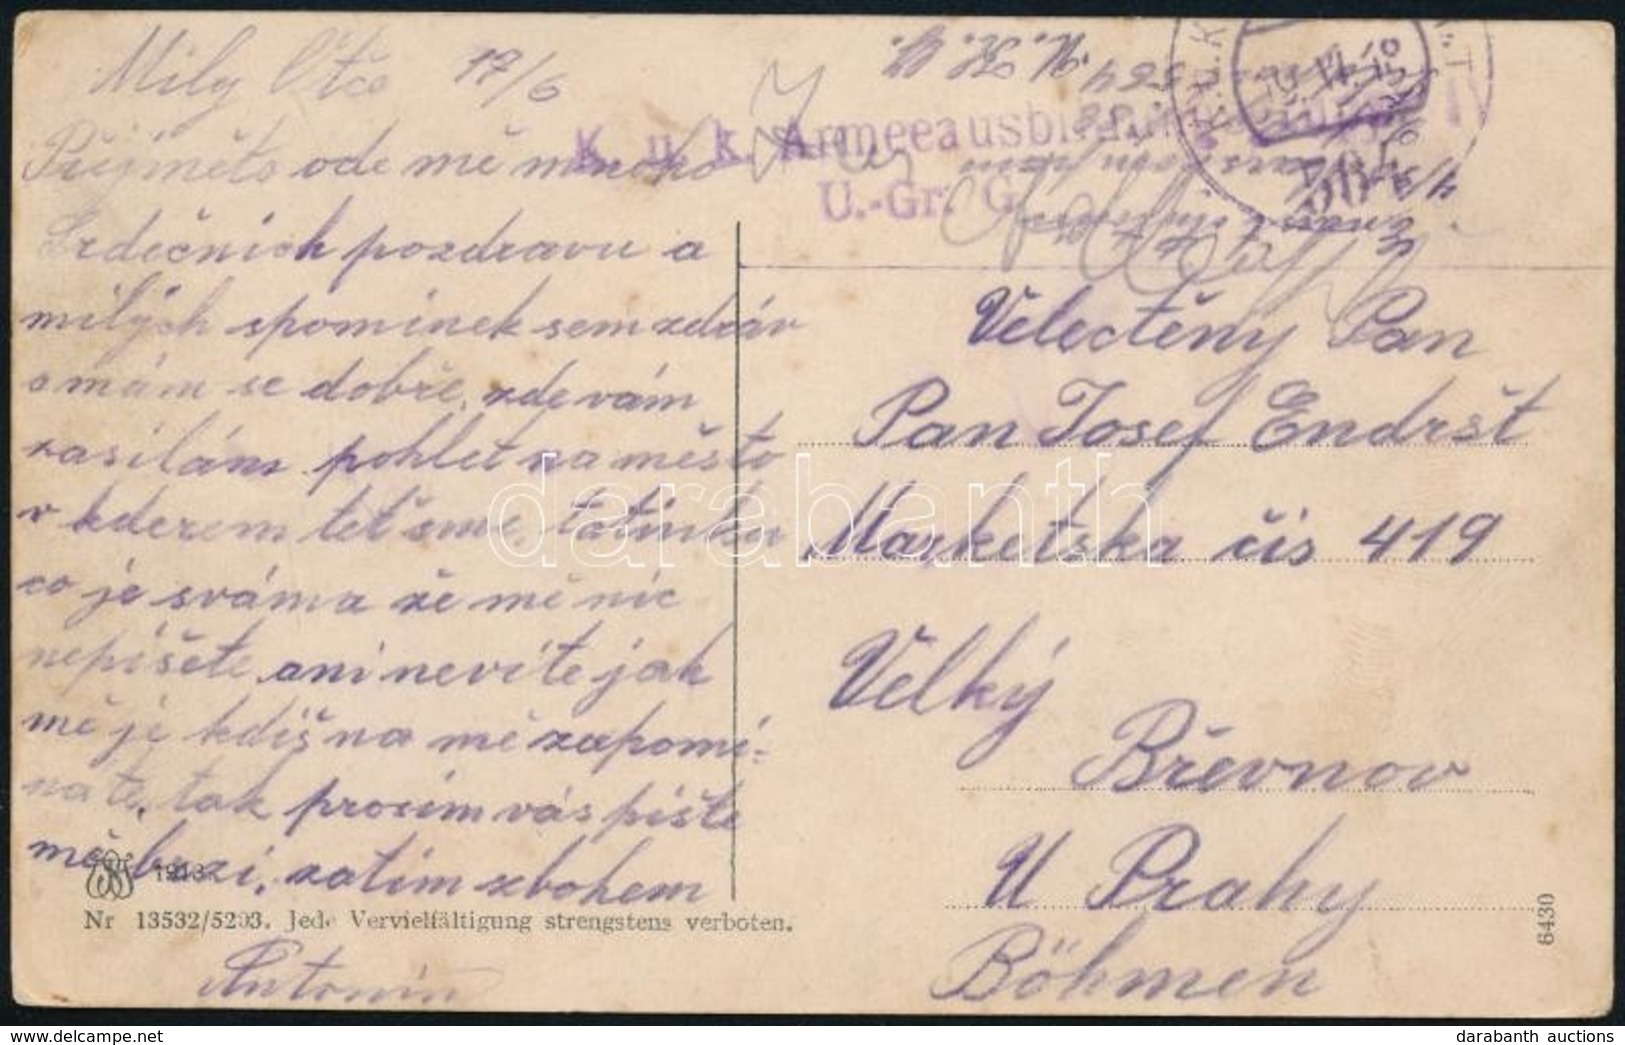 Milý Otče 17/6
Přijměts ode mě mnoho
Srdečnich pozdravu a
milých spominek sem zdráv
a mám se dobře, zde vám
zasilám pohlet na město
v kderem teť sme, tatinku
co je sváma že mě nic
nepišete ani nevíte jak
mě je kdiš na mě zapomí-
nate, tak prosím vás pište
mě brzi, zatím zbohem
Antonin
1918
Nr 13532/5203. Jede Vervielfältigung strengstens verboten.
K. u. k. Armeeausbildungs
U.-Gr. G
504
Velectěný Pan
Pan Josef Endršt
Marketska čis 419
Velký
Břevnov
U Prahy
Böhmen
6430
darabanth
darabanth auctions